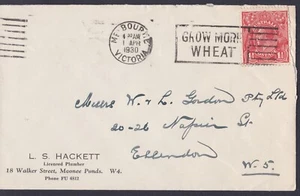 MELBOURNE
4 - PM
1 APR
1930
VICTORIA
GROW MORE
WHEAT
Messrs W & L. Gordon Pty Ltd
20-26 Napier St
Essendon
W.5.
L. S. HACKETT
Licensed Plumber
18 Walker Street, Moonee Ponds. W4.
Phone FU 4512